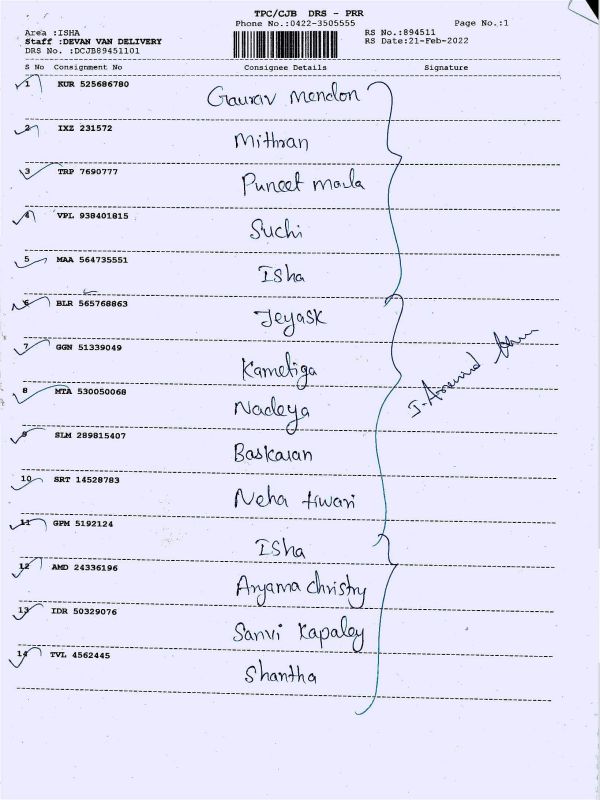 TPC/CJB DRS - PRR
Phone No.:0422-3505555 Page No.:1
Area :ISHA RS No.:894511
Staff :DEVAN VAN DELIVERY RS Date:21-Feb-2022
DRS No. :DCJB89451101
S No Consignment No Consignee Details Signature
1 KUR 525686780 Gaurav Mendon
2 IXZ 231572 Mithran
3 TRP 7690777 Puneet Marla
4 VPL 938401815 Suchi
5 MAA 564735551 Isha
6 BLR 565768863 Jeyask
7 GGN 51339049 Kametiga
8 MTA 530050068 Nadeya
9 SLM 289815407 Baskaran
10 SRT 14528783 Neha tiwari
11 GPM 5192124 Isha
12 AMD 24336196 Aryama christry
13 IDR 50329076 Sanvi Kapaley
14 TVL 4562445 Shantha